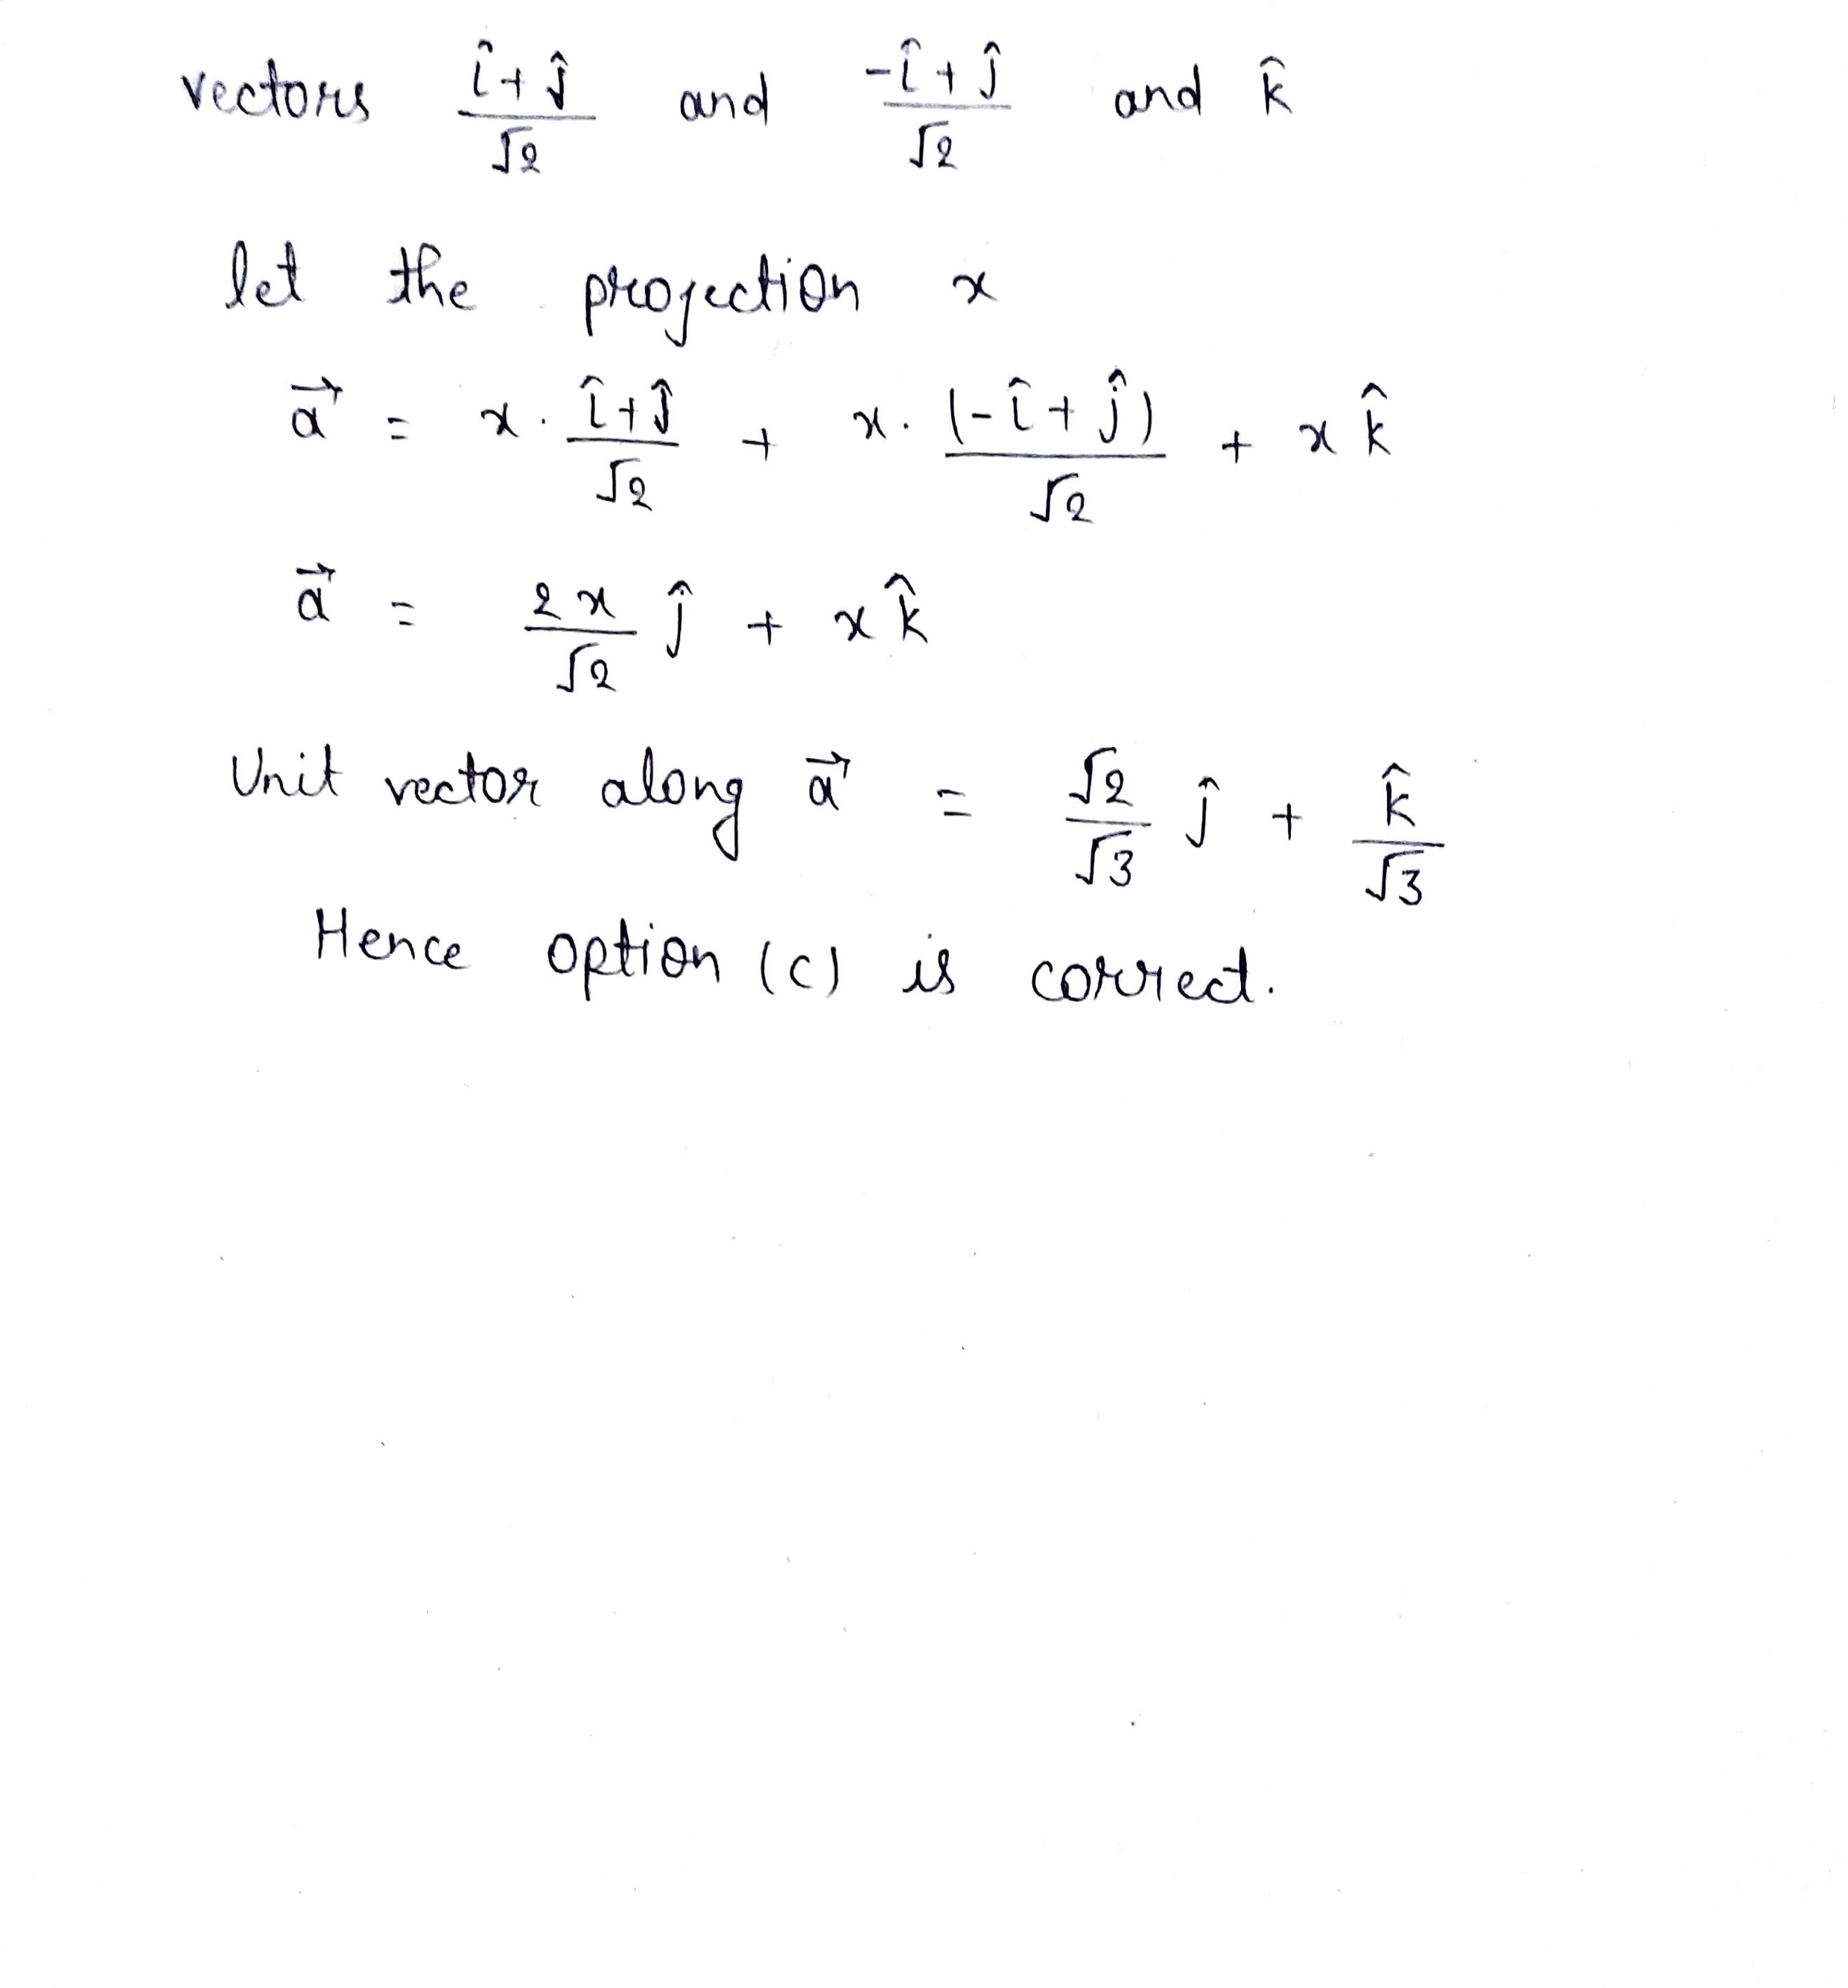 vectors (î+ĵ)/√2 and (-î+ĵ)/√2 and k̂
let the projection x
a⃗ = x. (î+ĵ)/√2 + x. (-î+ĵ)/√2 + x k̂
a⃗ = 2x/√2 ĵ + x k̂
Unit vector along a⃗ = √2/√3 ĵ + k̂/√3
Hence option (c) is correct.